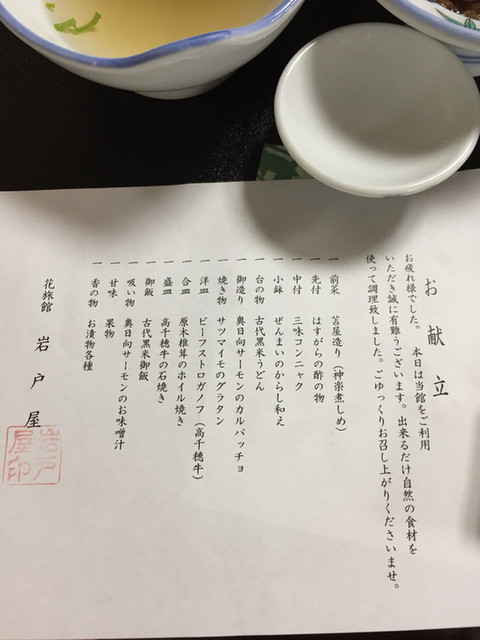 お献立
お疲れ様でした。 本日は当館をご利用
いただき誠に有難うございます。出来るだけ自然の食材を
使って調理致しました。ごゆっくりお召し上がりくださいませ。
一 前菜 苫屋造り(神楽煮しめ)
一 先付 はすがらの酢の物
一 中付 三味コンニャク
一 小鉢 ぜんまいのからし和え
一 台の物 古代黒米うどん
一 御造り 奥日向サーモンのカルパッチョ
一 焼き物 サツマイモのグラタン
一 洋皿 ビーフストロガノフ(高千穂牛)
一 合皿 原木椎茸のホイル焼き
一 盛皿 高千穂牛の石焼き
一 御飯 古代黒米御飯
一 吸い物 奥日向サーモンのお味噌汁
一 甘味 果物
一 香の物 お漬物各種
花旅館 岩戸屋
岩戸
屋印